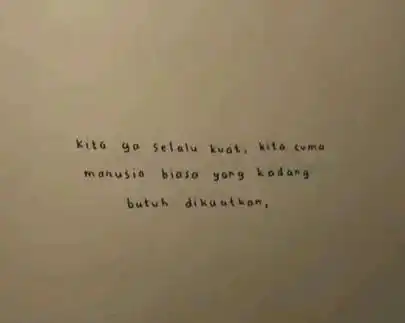 kita ga selalu kuat, kita cuma
manusia biasa yang kadang
butuh dikuatkan,